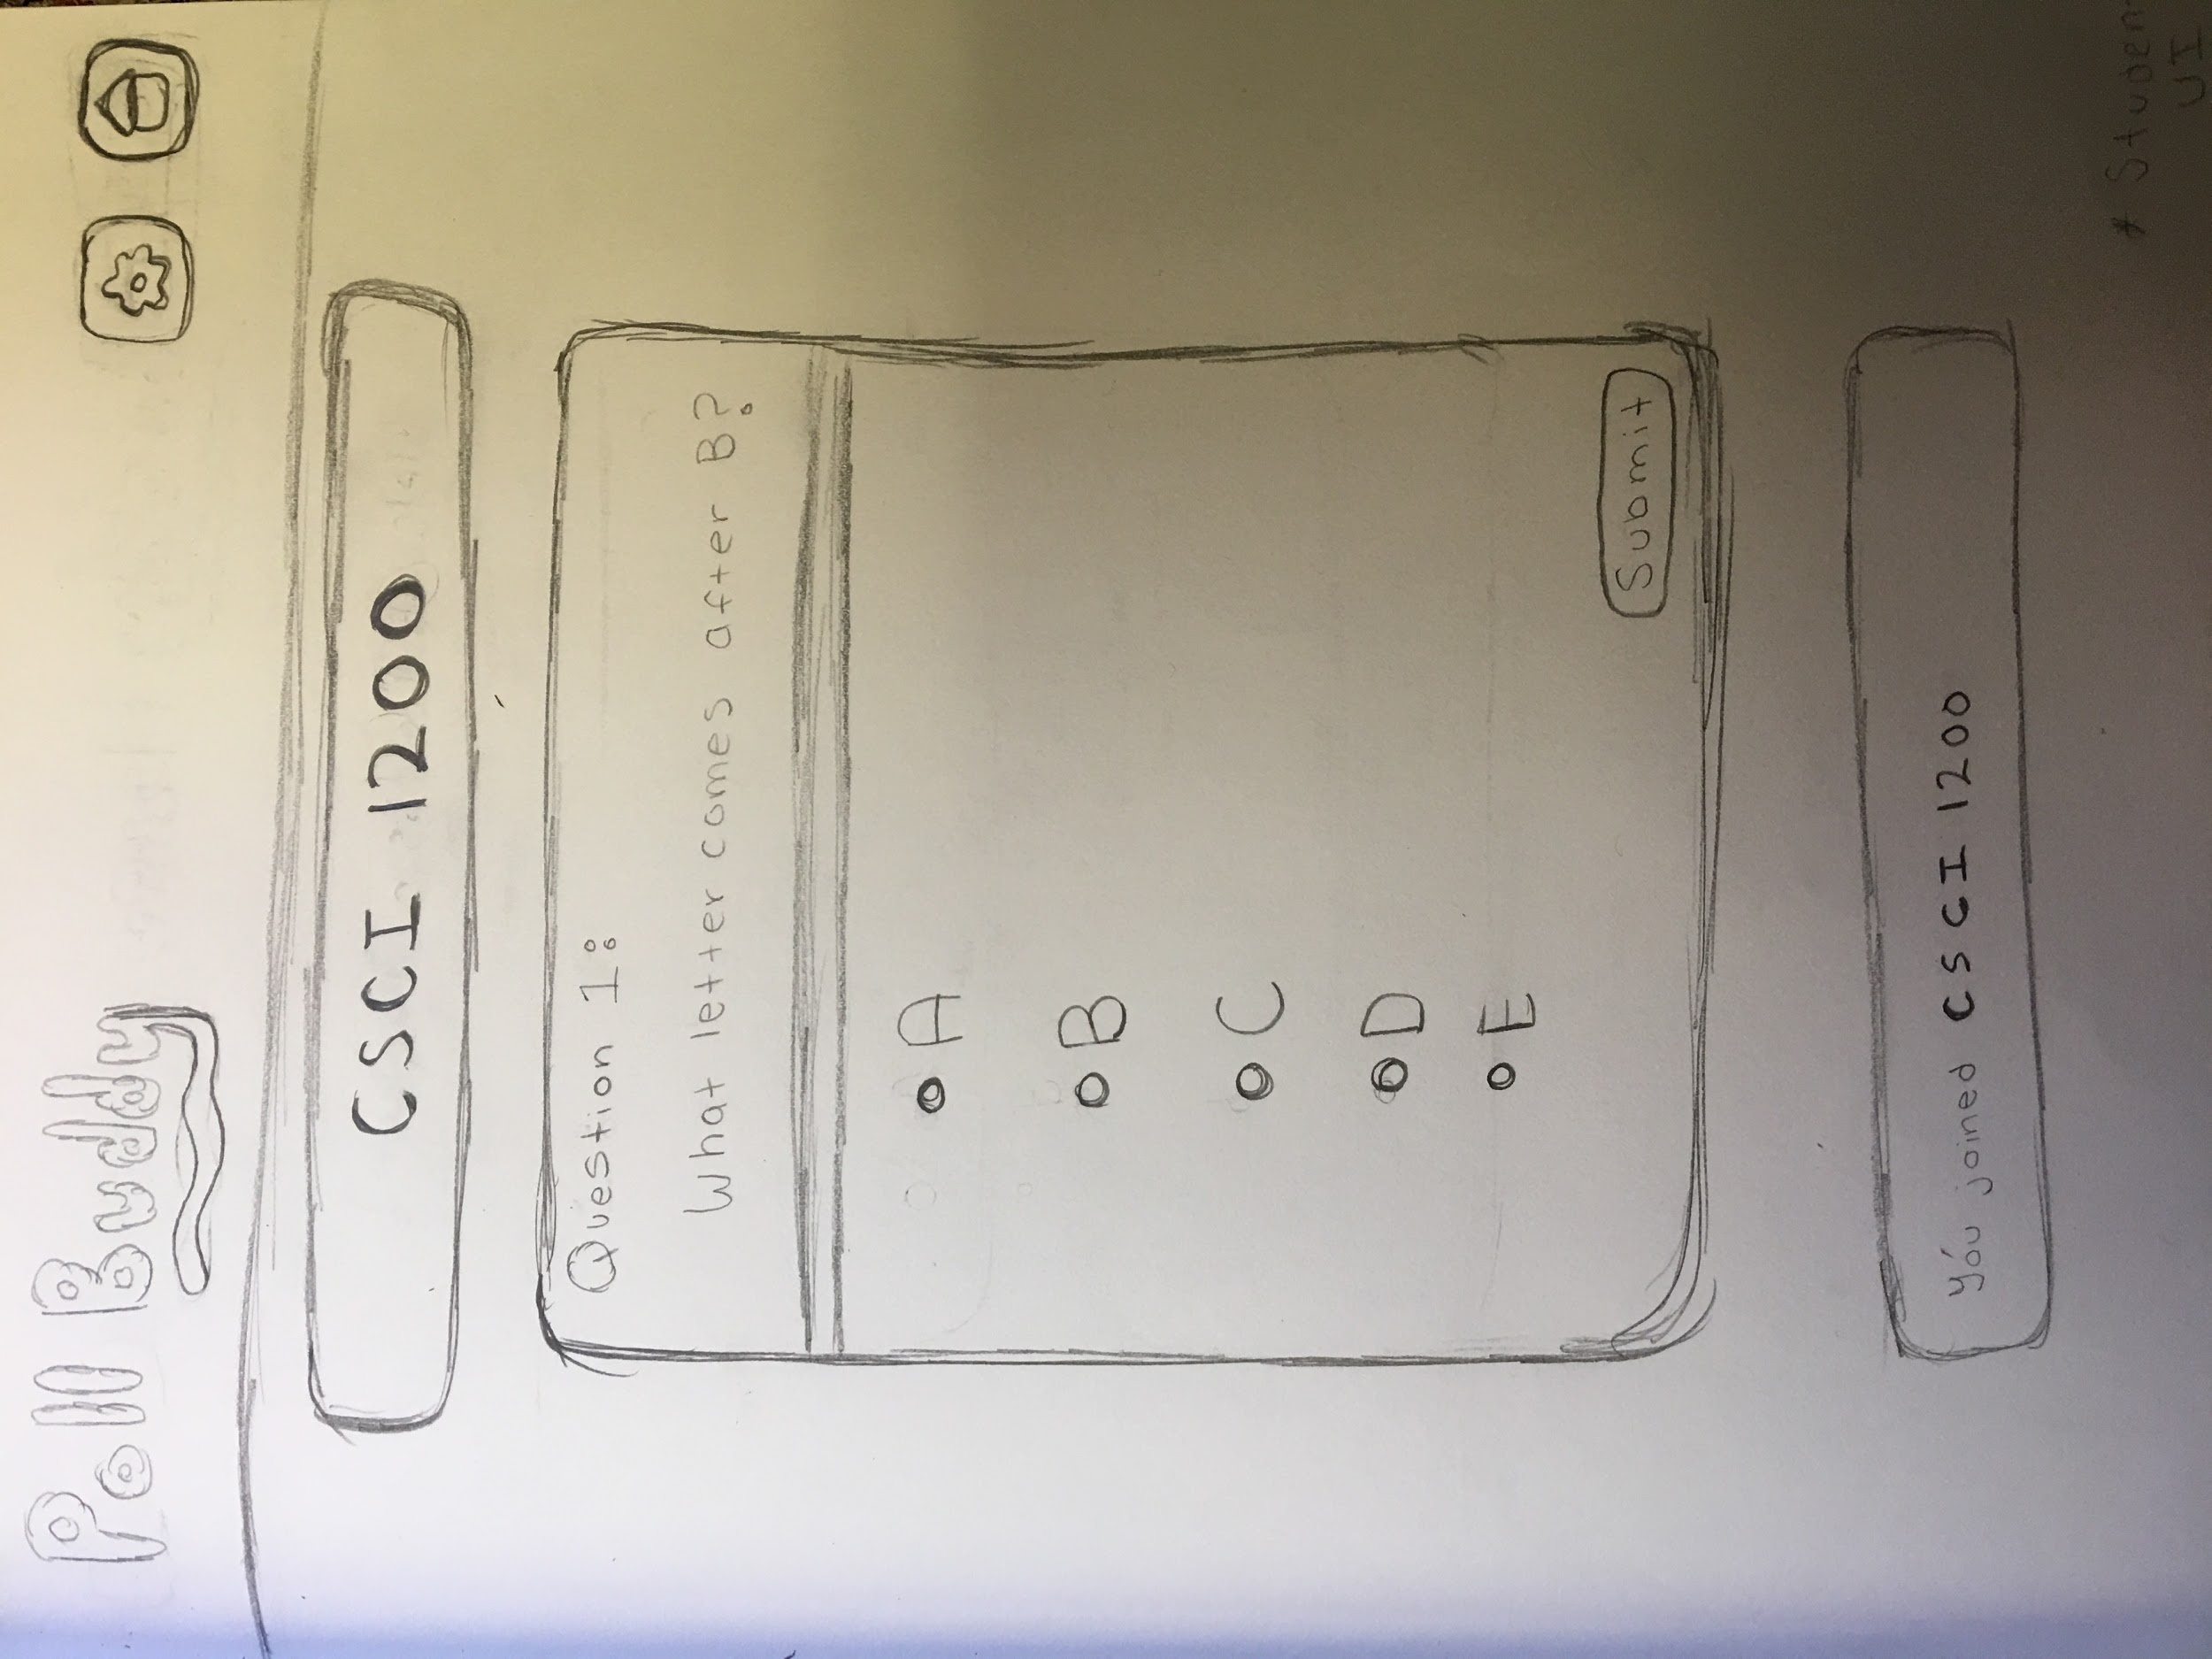 Poll Buddy
CSCI 1200
Question 1:
What letter comes after B?
A
B
C
D
E
Submit
You joined CSCI 1200
* Student
UI